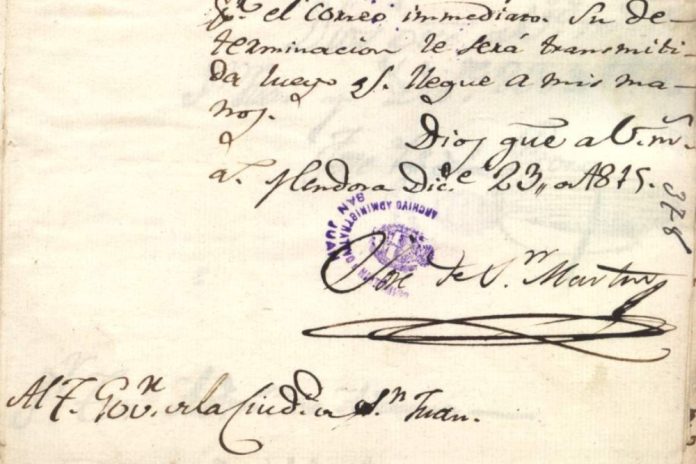 pr. el correo immediato. Su de-
terminacion le será transmiti-
da luego qe. llegue a mis ma-
nos.
Dios gue a V. ms.
as. Mendoza Dice. 23,, de 1815.
378
ARCHIVO ADMINISTRATIVO
SAN JUAN
José de Sn. Martin
Al T. Govr. de la Ciudad de Sn. Juan.